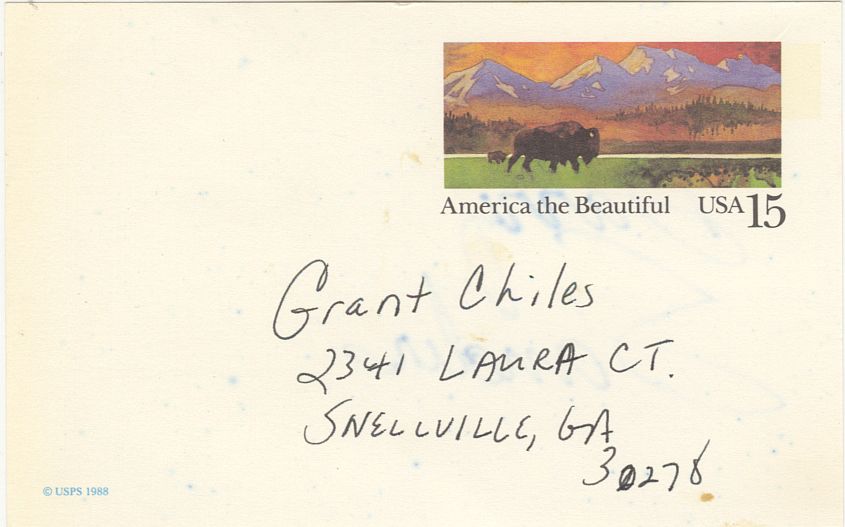 America the Beautiful USA 15
Grant Chiles
2341 LAURA CT.
SNELLVILLE, GA
30278
© USPS 1988